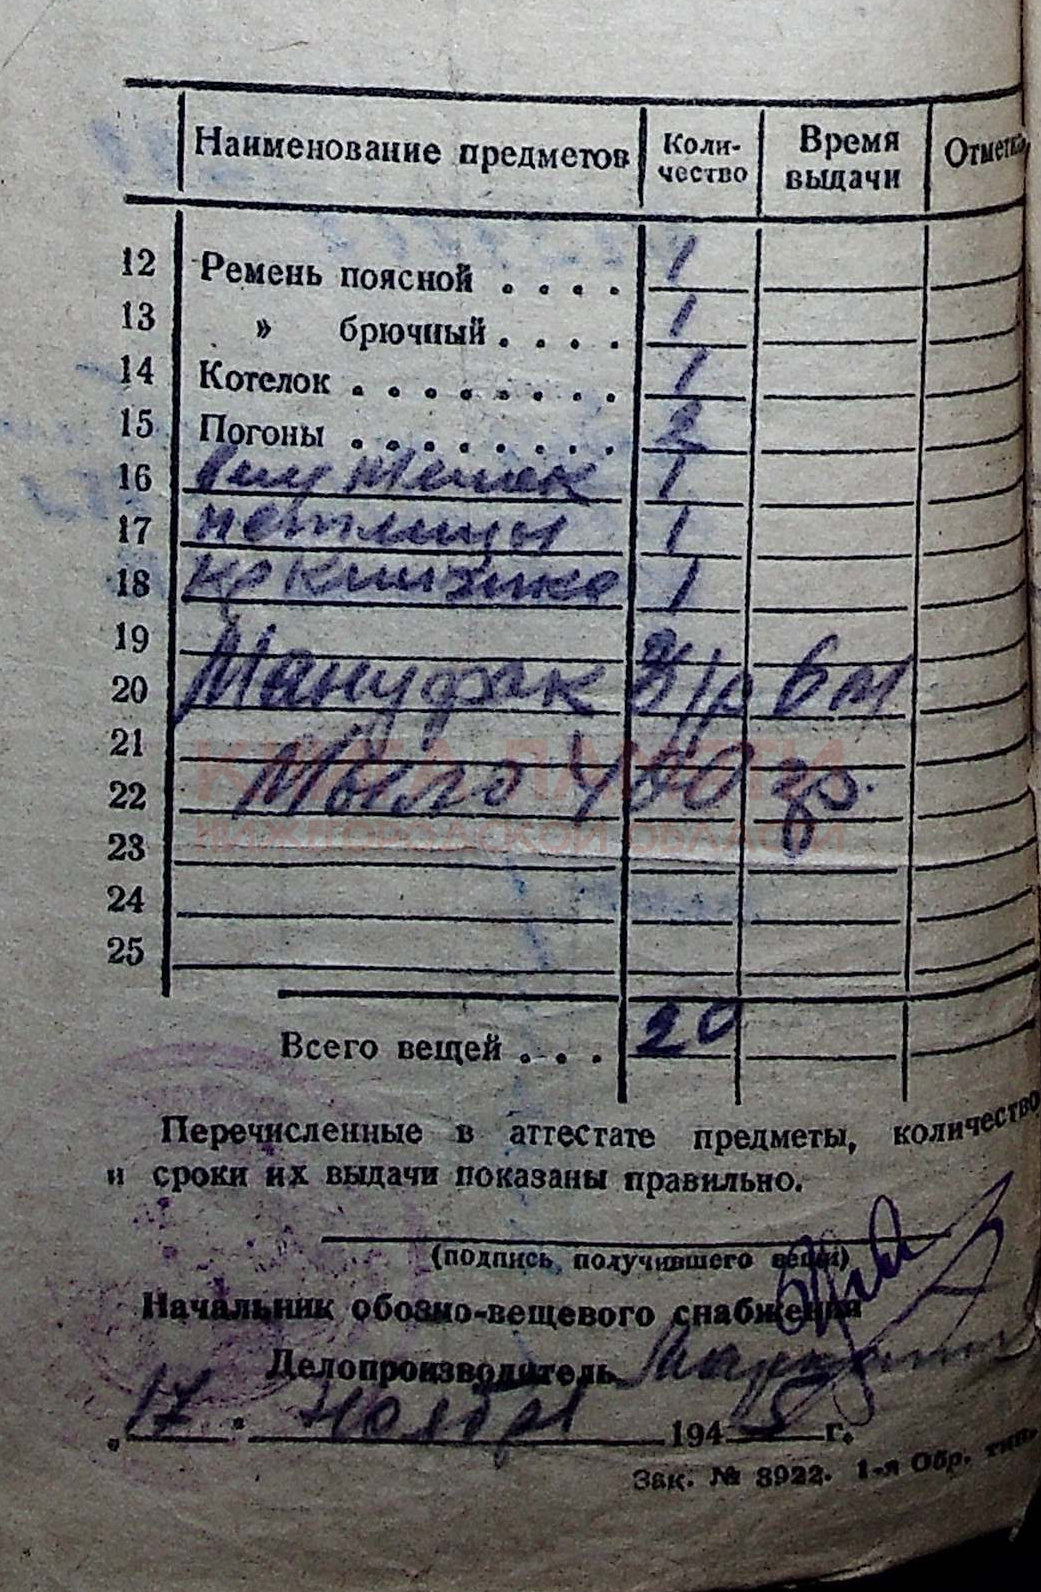 Наименование предметов Коли-чество Время выдачи Отметка
12 Ремень поясной . . . . 1
13 » брючный . . . . 1
14 Котелок . . . . . . . . 1
15 Погоны . . . . . . . . 2
16 Вещ мешок 1
17 петлицы 1
18 кр книжка 1
19
20 Мануфак 6 м
21
22 Мыло 400 гр.
23
24
25
КНИГА ПАМЯТИ
НИЖЕГОРОДСКОЙ ОБЛАСТИ
Всего вещей . . . 20
Перечисленные в аттестате предметы, количество
и сроки их выдачи показаны правильно.
(подпись получившего вещи)
Начальник обозно-вещевого снабжения
Делопроизводитель
„17 " Ноябр 1945 г.
Зак. № 3922. 1-я Обр. тип.